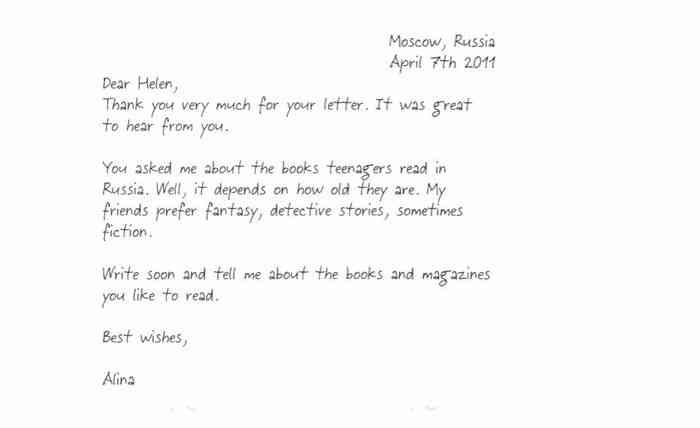 Moscow, Russia
April 7th 2011
Dear Helen,
Thank you very much for your letter. It was great
to hear from you.
You asked me about the books teenagers read in
Russia. Well, it depends on how old they are. My
friends prefer fantasy, detective stories, sometimes
fiction.
Write soon and tell me about the books and magazines
you like to read.
Best wishes,
Alina